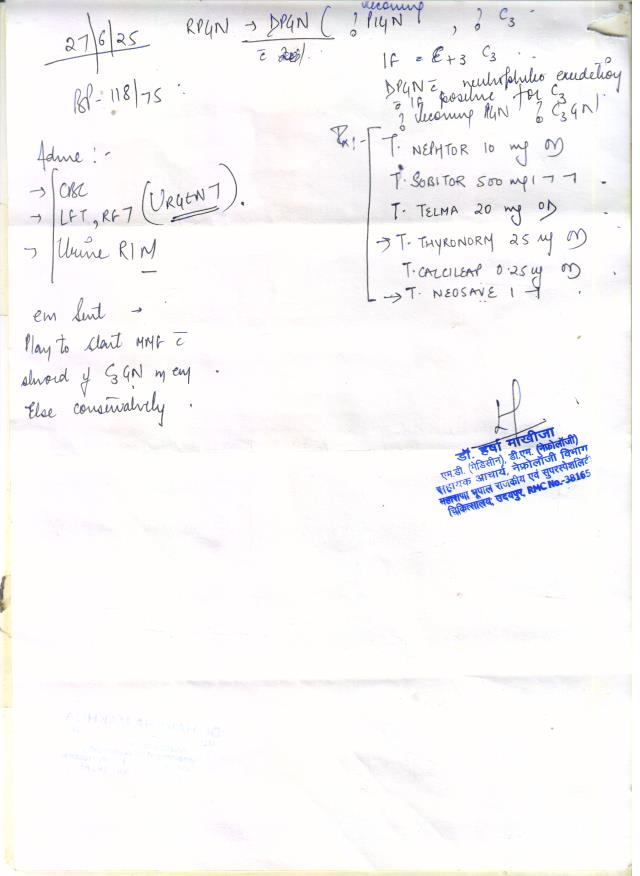 27/6/25
RPGN → DPGN ( ? resolving PIGN , ? C3
BP - 118/75
IF = C+3 C3
DPGN c̄ neutrophilic exudation
IF positive for C3
? resolving ? C3GN)
Adv :-
→ CBC
→ LFT, RFT (URGENT).
→ Urine R/M
Rx:-
T. NEPHTOR 10 mg OD
T. SOBITOR 500 mg 1-1-1
T. TELMA 20 mg OD
→ T. THYRONORM 25 ug OD
T. CALCILEAP 0.25 ug OD
→ T. NEOSAVE 1
em sent →
Plan to start MMF c̄
steroid if C3GN in em .
Else conservatively .
डॉ. हर्षा माखीजा
एम.डी. (मेडिसीन), डी.एम. (नेफ्रोलॉजी)
सहायक आचार्य, नेफ्रोलॉजी विभाग
महाराणा भूपाल राजकीय एवं सुपरस्पेशलिटी
चिकित्सालय, उदयपुर, RMC No.-38165